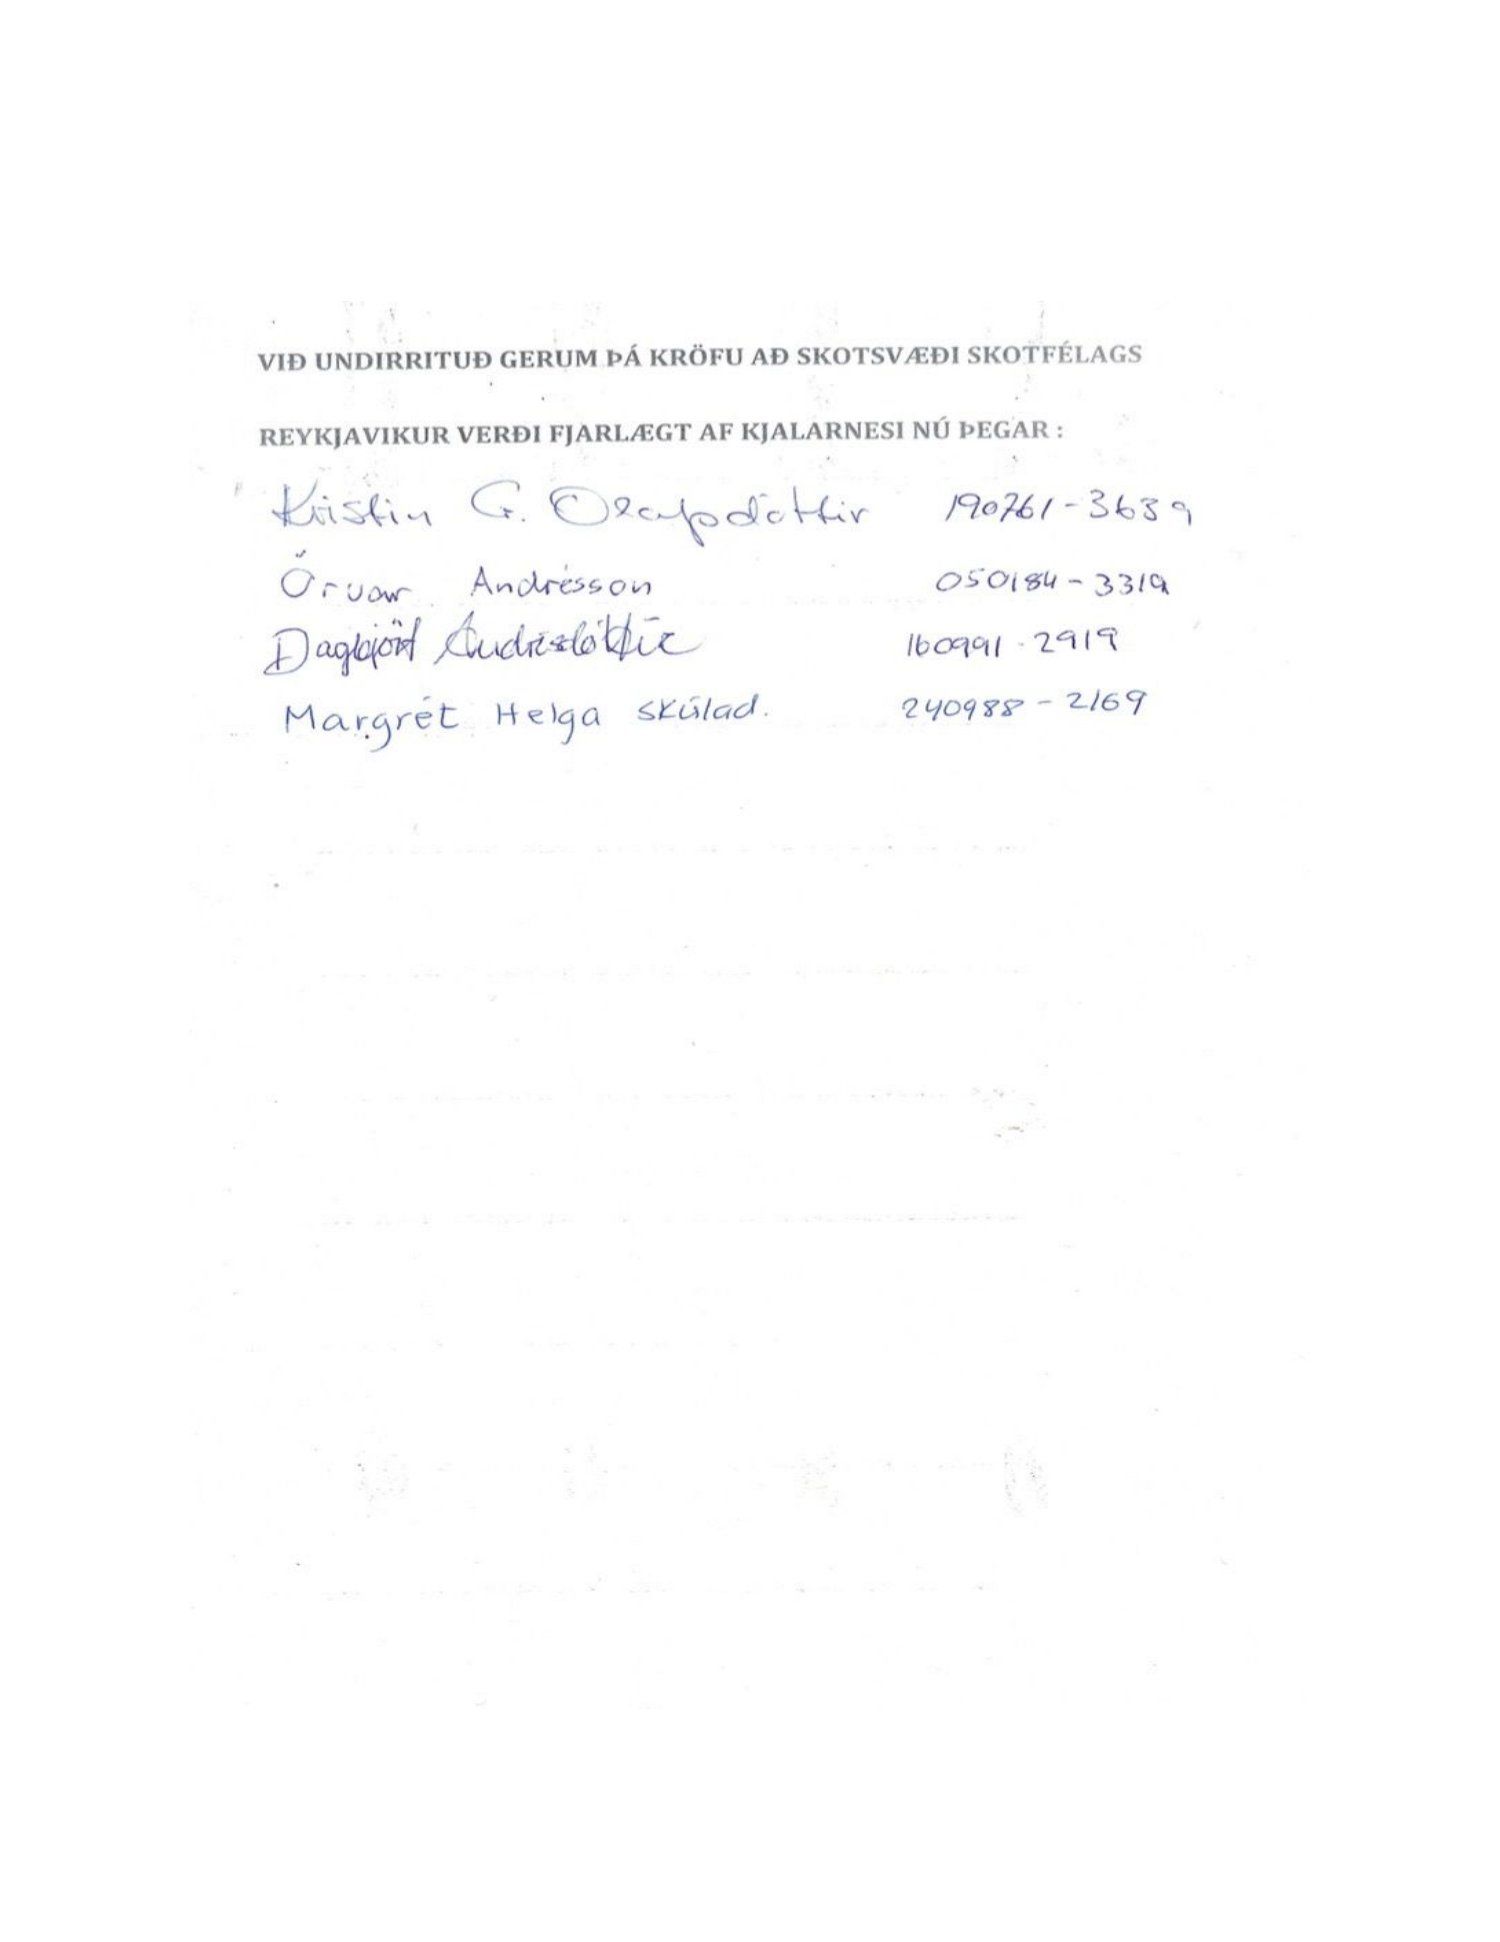 VIÐ UNDIRRITUÐ GERUM ÞÁ KRÖFU AÐ SKOTSVÆÐI SKOTFÉLAGS
REYKJAVIKUR VERÐI FJARLÆGT AF KJALARNESI NÚ ÞEGAR :
Kristín G. Ólafsdóttir 190761-3639
Örvar Andrésson 050184-3319
Dagbjört Andrésdóttir 160991-2919
Margrét Helga Skúlad. 240988-2169